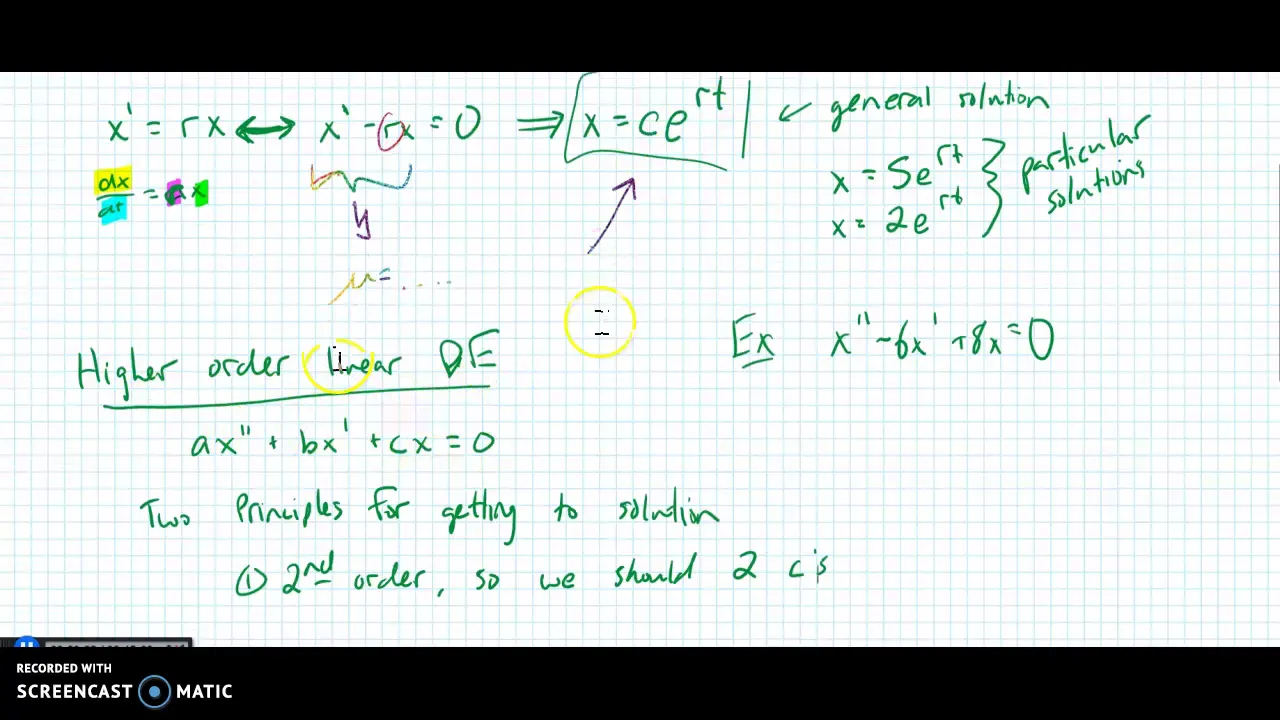 x' = rx ↔ x' - rx = 0 ⇒ x = ce^{rt} ← general solution
dx/dt = r x
y
μ = ....
x = 5e^{rt}
x = 2e^{rt}
} particular solutions
Higher order linear DE
Ex x'' - 6x' + 8x = 0
ax'' + bx' + cx = 0
Two Principles for getting to solution
① 2nd order, so we should 2 c's
RECORDED WITH
SCREENCAST MATIC